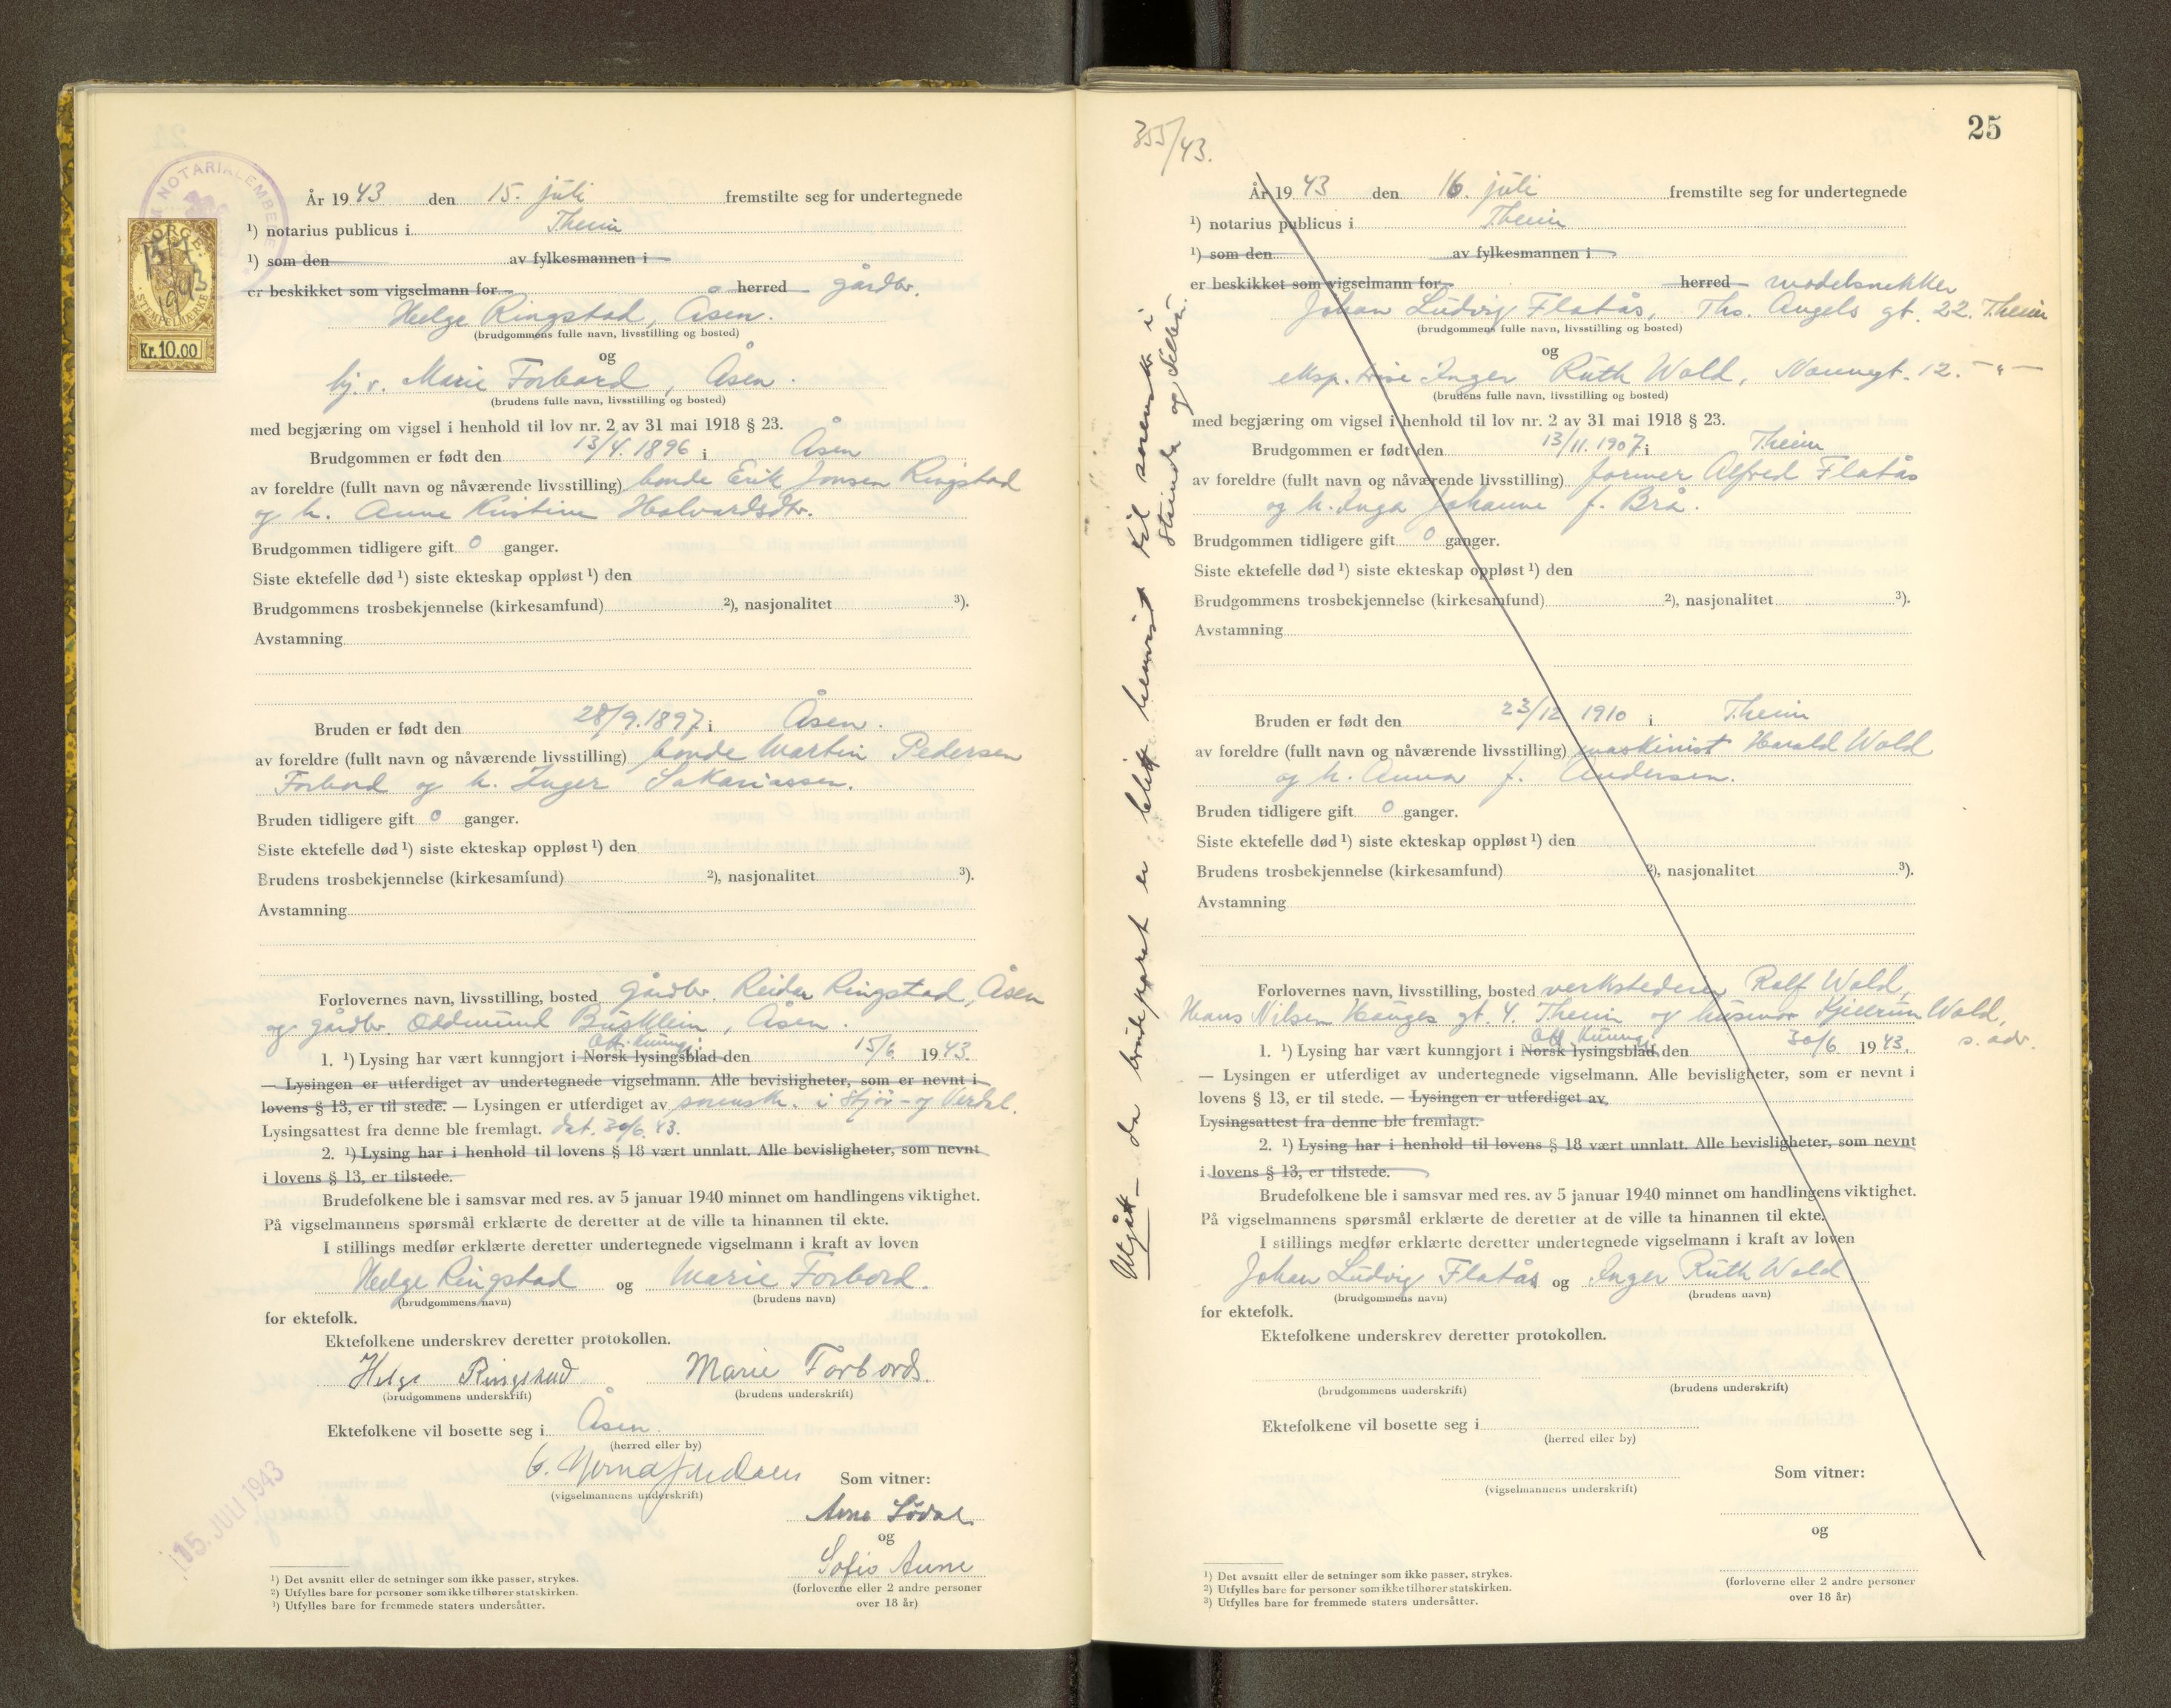 NOTARIALEMBE
NORGE
15/7
1943
STEMPELMERKE
Kr. 10.00
År 1943 den 15. juli fremstilte seg for undertegnede
¹) notarius publicus i Theim
¹) som den av fylkesmannen i
er beskikket som vigselmann for herred gårdbr.
Helge Ringstad, Åsen.
(brudgommens fulle navn, livsstilling og bosted)
og
hj. v. Marie Forbord, Åsen.
(brudens fulle navn, livsstilling og bosted)
med begjæring om vigsel i henhold til lov nr. 2 av 31 mai 1918 § 23.
Brudgommen er født den 13/4. 1896 i Åsen
av foreldre (fullt navn og nåværende livsstilling) bonde Erik Jonsen Ringstad
og h. Anne Kristine Halvardsdtr.
Brudgommen tidligere gift 0 ganger.
Siste ektefelle død ¹) siste ekteskap oppløst ¹) den
Brudgommens trosbekjennelse (kirkesamfund) ²), nasjonalitet ³).
Avstamning
Bruden er født den 28/9. 1897 i Åsen.
av foreldre (fullt navn og nåværende livsstilling) bonde Martin Pedersen
Forbord og h. Inger Sakariassen.
Bruden tidligere gift 0 ganger.
Siste ektefelle død ¹) siste ekteskap oppløst ¹) den
Brudens trosbekjennelse (kirkesamfund) ²), nasjonalitet ³).
Avstamning
Forlovernes navn, livsstilling, bosted gårdbr. Reidar Ringstad, Åsen
og gårdbr. Oddmund Busklein, Åsen.
Off. kunngj.
1. ¹) Lysing har vært kunngjort i Norsk lysingsblad den 15/6 1943.
— Lysingen er utferdiget av undertegnede vigselmann. Alle bevisligheter, som er nevnt i
lovens § 13, er til stede. — Lysingen er utferdiget av sorenskr. i Stjør- og Verdal.
Lysingsattest fra denne ble fremlagt. dat. 30/6. 43.
2. ¹) Lysing har i henhold til lovens § 18 vært unnlatt. Alle bevisligheter, som nevnt
i lovens § 13, er tilstede.
Brudefolkene ble i samsvar med res. av 5 januar 1940 minnet om handlingens viktighet.
På vigselmannens spørsmål erklærte de deretter at de ville ta hinannen til ekte.
I stillings medfør erklærte deretter undertegnede vigselmann i kraft av loven
Helge Ringstad og Marie Forbord.
(brudgommens navn) (brudens navn)
for ektefolk.
Ektefolkene underskrev deretter protokollen.
Helge Ringstad Marie Forbord.
(brudgommens underskrift) (brudens underskrift)
Ektefolkene vil bosette seg i Åsen.
(herred eller by)
(vigselmannens underskrift)
Som vitner:
Arne Lödal
og
Sofie Aune
(forloverne eller 2 andre personer
over 18 år)
15. JULI 1943
¹) Det avsnitt eller de setninger som ikke passer, strykes.
²) Utfylles bare for personer som ikke tilhører statskirken.
³) Utfylles bare for fremmede staters undersåtter.
25
355/43.
År 1943 den 16. juli fremstilte seg for undertegnede
¹) notarius publicus i Theim
¹) som den av fylkesmannen i
er beskikket som vigselmann for herred modelsnekker
Johan Ludvig Flatås, Ths. Angels gt. 22. Theim
(brudgommens fulle navn, livsstilling og bosted)
og
eksp. trise Inger Ruth Wold, Nonnegt. 12. -"-
(brudens fulle navn, livsstilling og bosted)
med begjæring om vigsel i henhold til lov nr. 2 av 31 mai 1918 § 23.
Brudgommen er født den 13/11. 1907 i Theim
av foreldre (fullt navn og nåværende livsstilling) former Alfred Flatås
og h. Inga Johanne f. Brå.
Brudgommen tidligere gift 0 ganger.
Siste ektefelle død ¹) siste ekteskap oppløst ¹) den
Brudgommens trosbekjennelse (kirkesamfund) ²), nasjonalitet ³).
Avstamning
Bruden er født den 23/12 1910 i Theim
av foreldre (fullt navn og nåværende livsstilling) maskinist Harald Wold
og h. Anna f. Andersen.
Bruden tidligere gift 0 ganger.
Siste ektefelle død ¹) siste ekteskap oppløst ¹) den
Brudens trosbekjennelse (kirkesamfund) ²), nasjonalitet ³).
Avstamning
Forlovernes navn, livsstilling, bosted verksteder Rolf Wold,
Hans Nilsen Hauges gt. 4. Theim og husmor Kjellrun Wold,
s. adr.
Off. kunngj.
1. ¹) Lysing har vært kunngjort i Norsk lysingsblad den 30/6 1943.
— Lysingen er utferdiget av undertegnede vigselmann. Alle bevisligheter, som er nevnt i
lovens § 13, er til stede. — Lysingen er utferdiget av
Lysingsattest fra denne ble fremlagt.
2. ¹) Lysing har i henhold til lovens § 18 vært unnlatt. Alle bevisligheter, som nevnt
i lovens § 13, er tilstede.
Brudefolkene ble i samsvar med res. av 5 januar 1940 minnet om handlingens viktighet.
På vigselmannens spørsmål erklærte de deretter at de ville ta hinannen til ekte.
I stillings medfør erklærte deretter undertegnede vigselmann i kraft av loven
Johan Ludvig Flatås og Inger Ruth Wold
(brudgommens navn) (brudens navn)
for ektefolk.
Ektefolkene underskrev deretter protokollen.
(brudgommens underskrift) (brudens underskrift)
Ektefolkene vil bosette seg i
(herred eller by)
(vigselmannens underskrift)
Som vitner:
og
(forloverne eller 2 andre personer
over 18 år)
¹) Det avsnitt eller de setninger som ikke passer, strykes.
²) Utfylles bare for personer som ikke tilhører statskirken.
³) Utfylles bare for fremmede staters undersåtter.
Utgått - da brudeparet er blitt henvist til sorenskr. i
Strinda og Selbu.